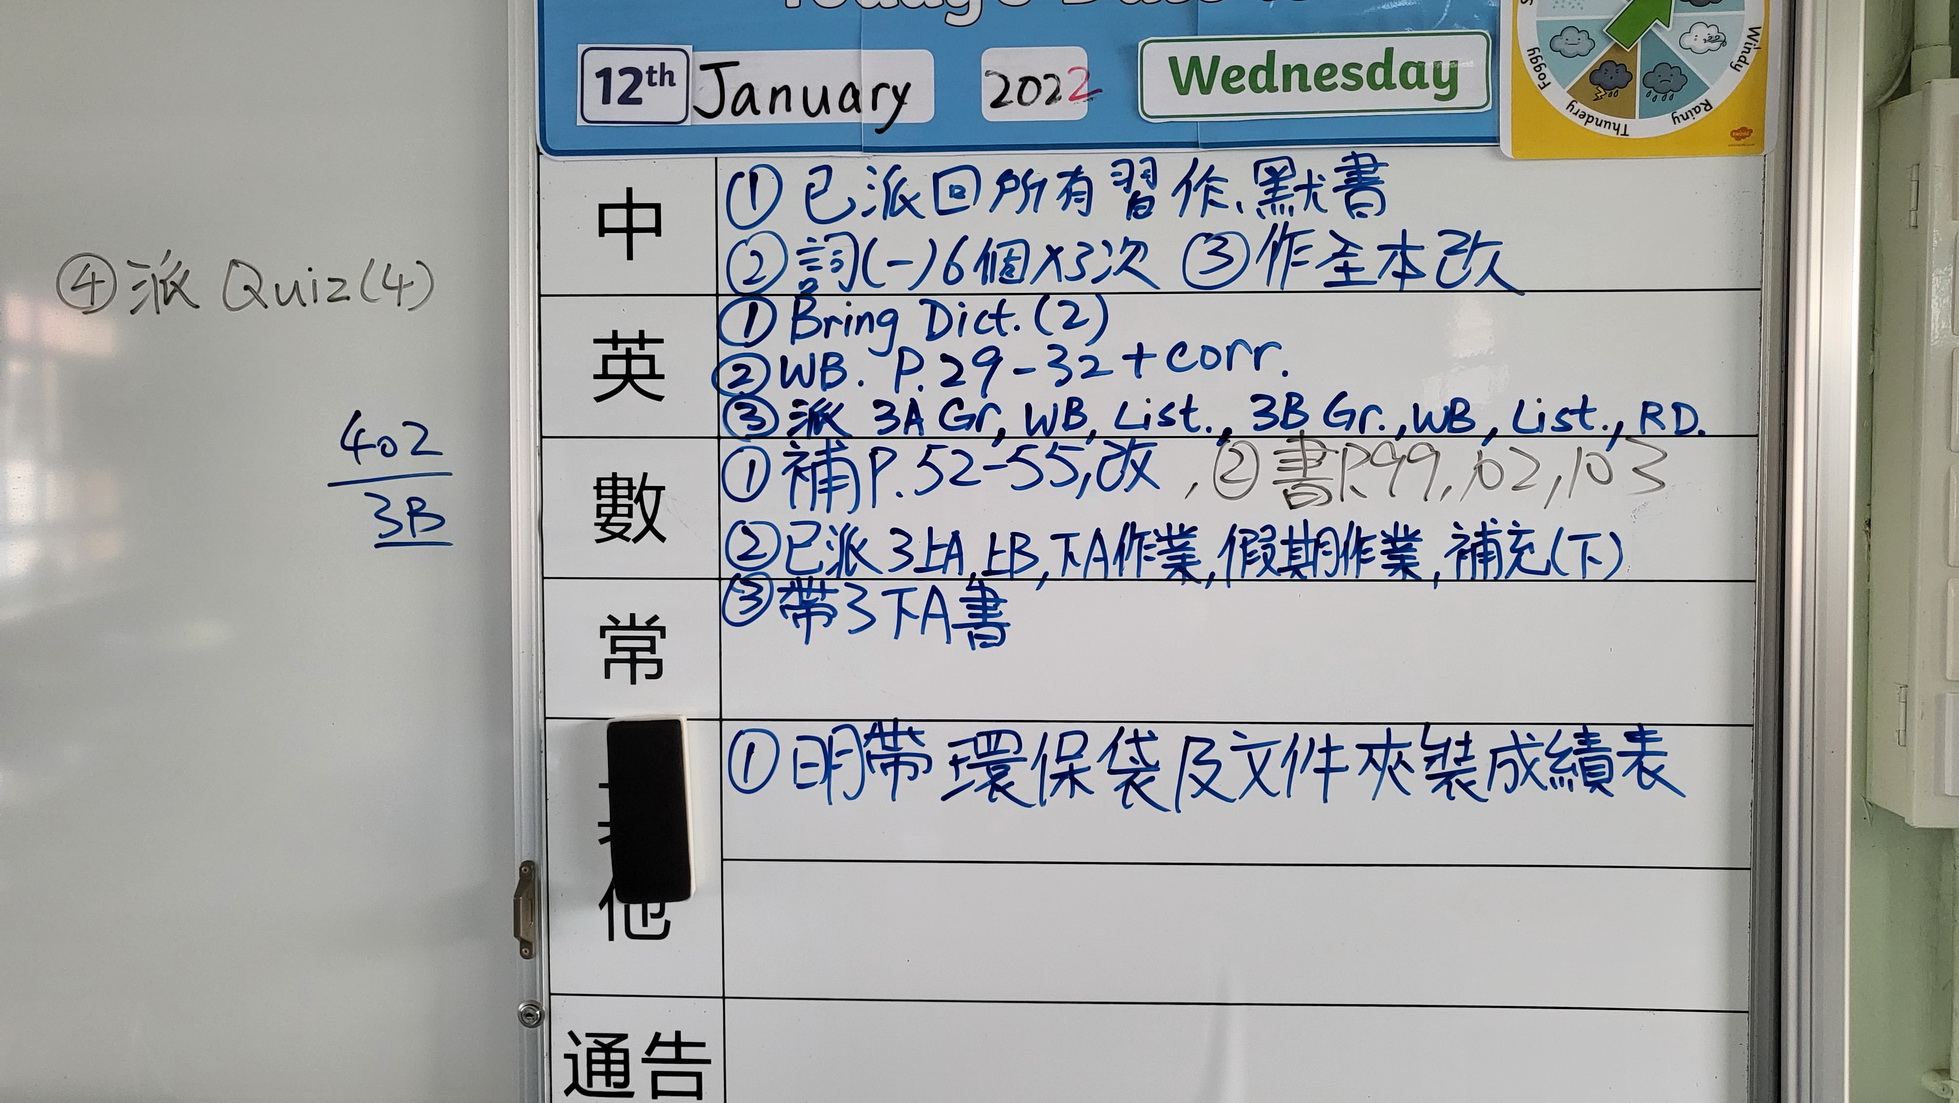 12th January 2022 Wednesday
Foggy
Thundery
Rainy
Windy
中
①已派回所有習作、默書
②詞(一)6個X3次 ③作全本改
④派 Quiz(4)
英
① Bring Dict. (2)
② WB. P.29-32 + corr.
③ 派 3A Gr, WB, List., 3B Gr., WB, List., RD.
402
3B
數
①補P.52-55,改,②書P.99,102,103
②已派3上A,上B,下A作業,假期作業,補充(下)
③帶3下A書
常
他
①明帶環保袋及文件夾裝成績表
通告